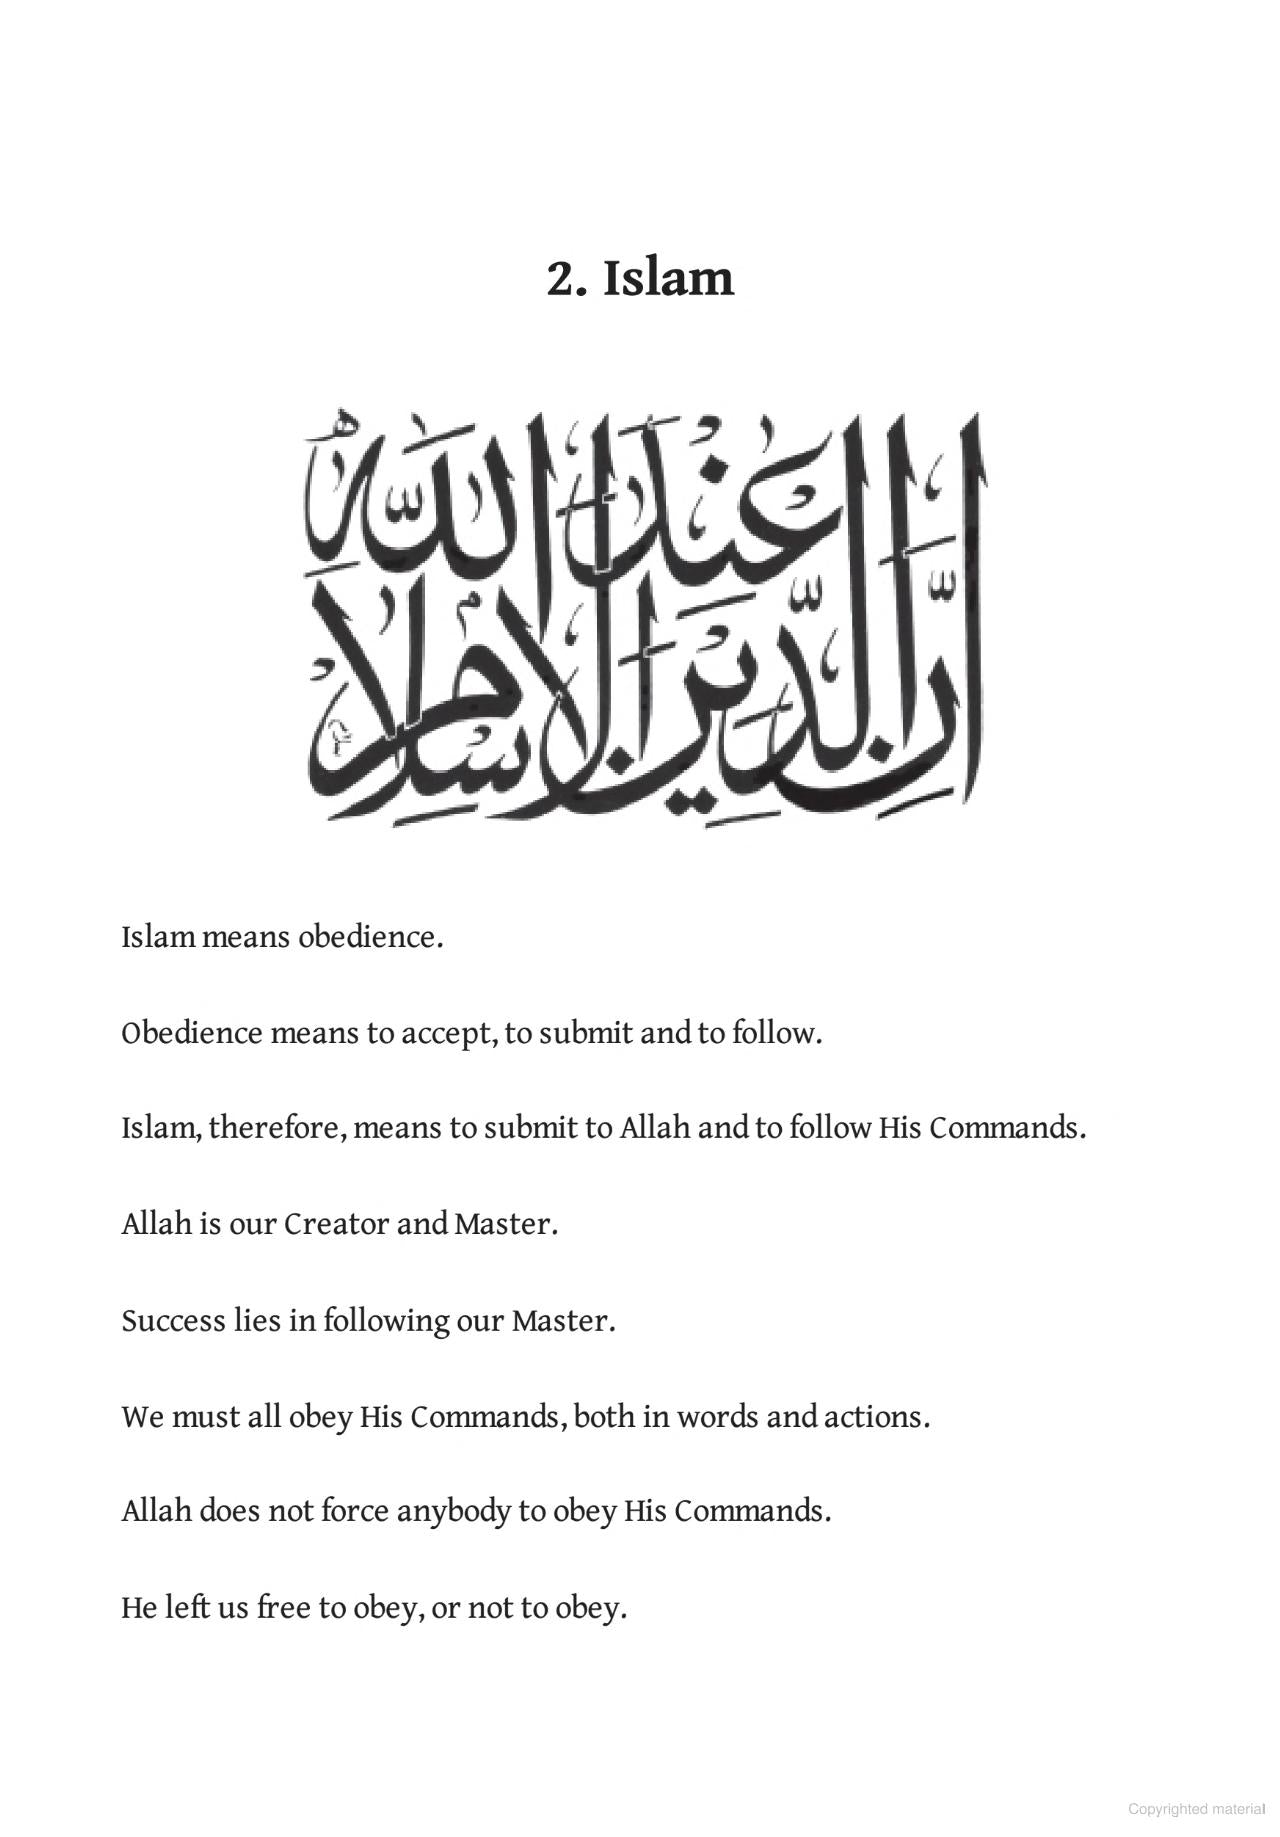 2. Islam
إِنَّ الدِّينَ عِنْدَ اللَّهِ الْإِسْلَامُ
Islam means obedience.
Obedience means to accept, to submit and to follow.
Islam, therefore, means to submit to Allah and to follow His Commands.
Allah is our Creator and Master.
Success lies in following our Master.
We must all obey His Commands, both in words and actions.
Allah does not force anybody to obey His Commands.
He left us free to obey, or not to obey.
Copyrighted material